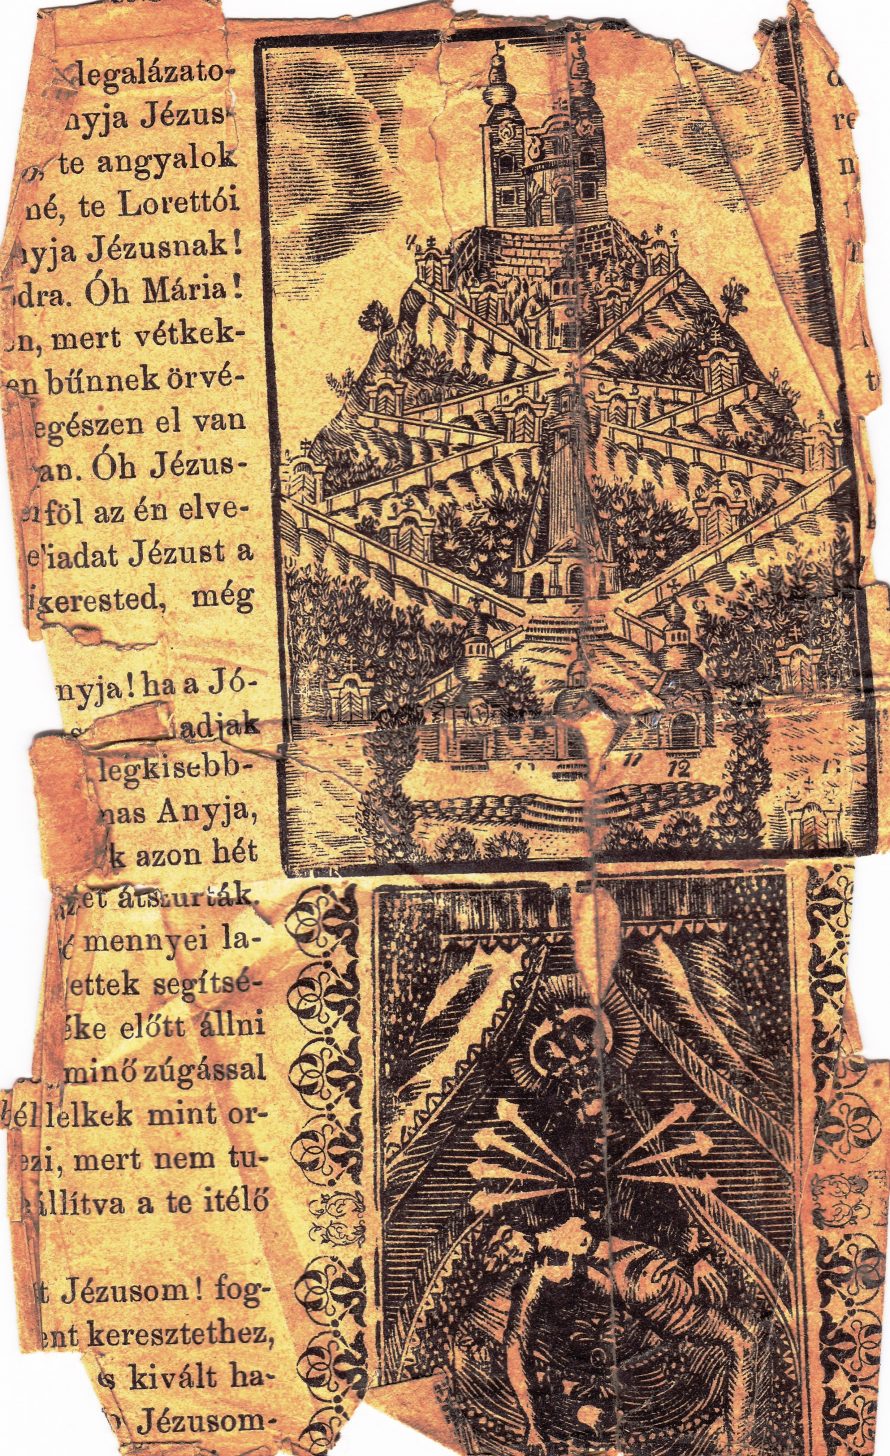 legalázato-
nyja Jézus-
te angyalok
né, te Lorettói
nyja Jézusnak!
dra. Óh Mária!
n, mert vétkek-
en bűnnek örvé-
egészen el van
an. Óh Jézus-
föl az én elve-
fiadat Jézust a
gkerested, még
nyja! ha a Jó-
adjak
legkisebb-
nas Anyja,
k azon hét
zet átszurták.
mennyei la-
ettek segítsé-
éke előtt állni
minő zúgással
lelkek mint or-
ezi, mert nem tu-
állítva a te itélő
t Jézusom! fog-
ent keresztethez,
s kivált ha-
Jézusom-
11
12